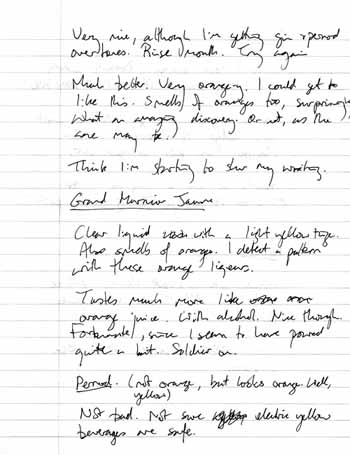 Very nice, although I'm getting gin & pernod
overtones. Rinse mouth. Try again
Much better. Very orangey. I could get to
like this. Smells of oranges too, surprisingly.
What an amazing discovery. Or not, as the
case may be.)
Think I'm starting to slur my writing.
Grand Marnier Jaune
Clear liquid with a light yellow tinge.
Also smells of oranges. I detect a pattern
with these orange liqueurs.
Tastes much more like
orange juice. With alcohol. Nice though.
Fortunately, since I seem to have poured
quite a bit. Soldier on.
Pernod. (not orange, but looks orange. Well,
yellow)
Not bad. Not sure electric yellow
beverages are safe.